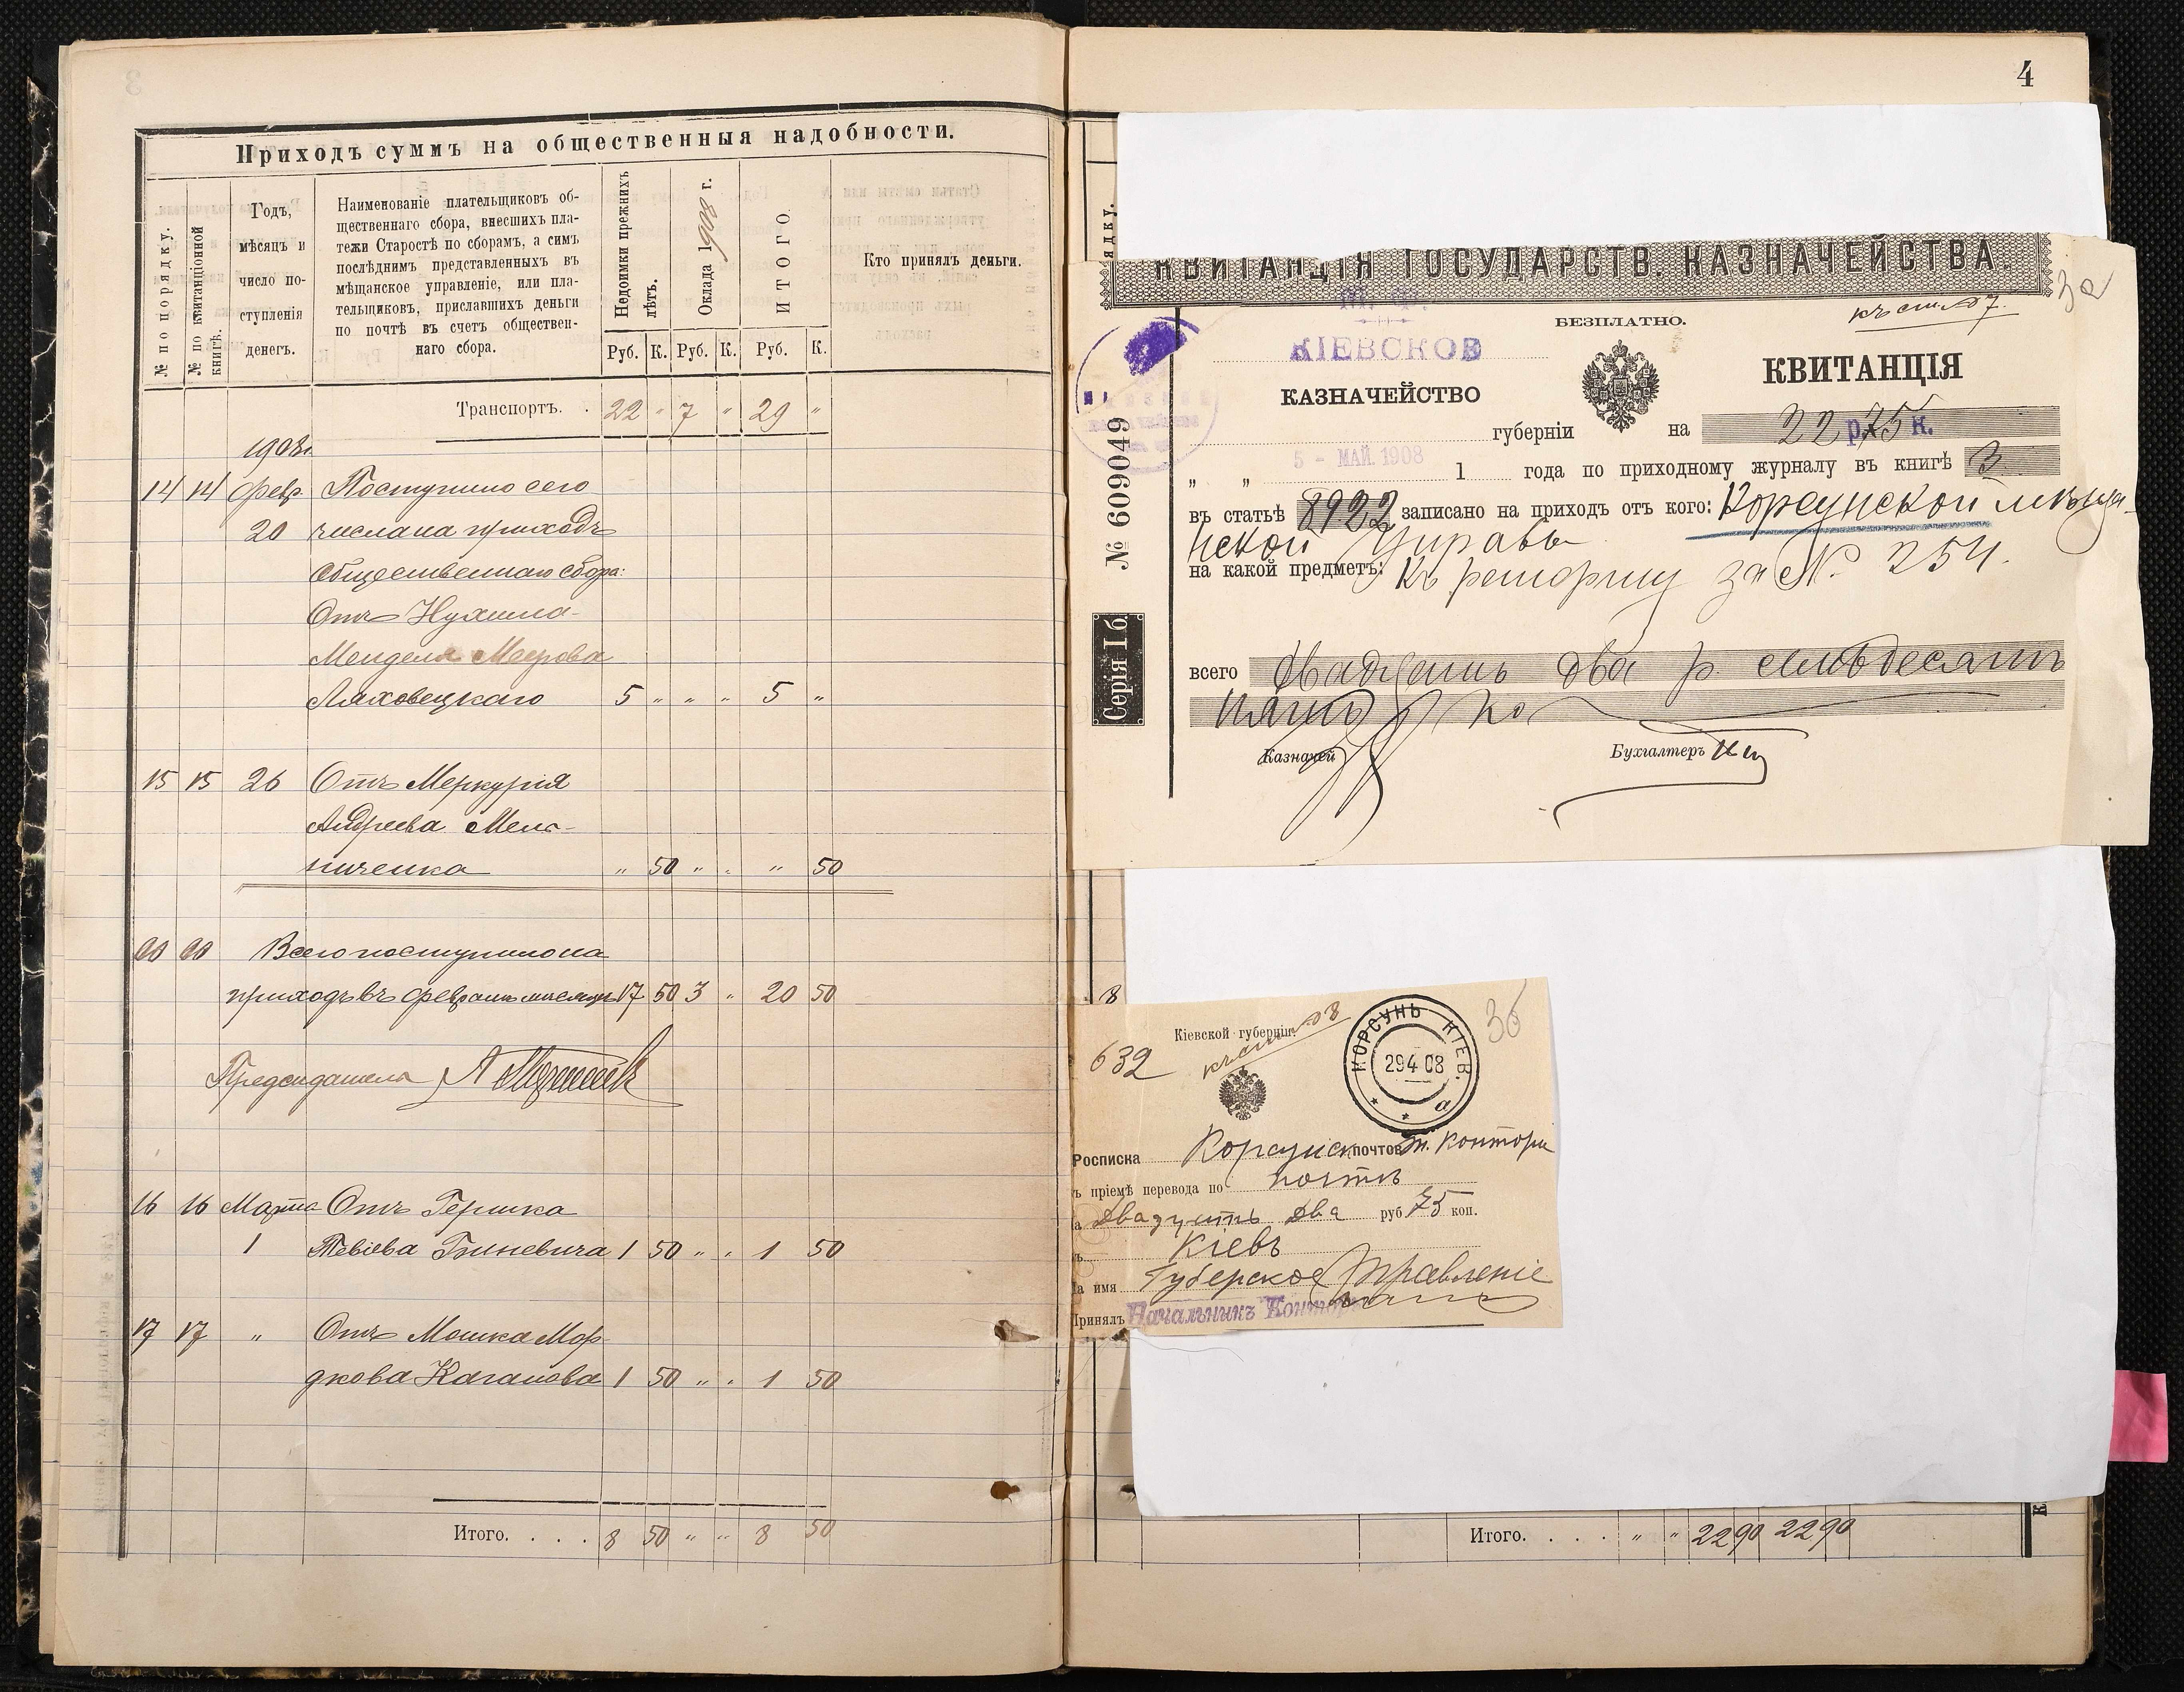 Приходъ суммъ на общественныя надобности.
№ по порядку.
№ по квитанціонной книгѣ.
Годъ,
мѣсяцъ и
число по-
ступленія
денегъ.
Наименованіе плательщиковъ об-
щественнаго сбора, внесшихъ пла-
тежи Старостѣ по сборамъ, а симъ
послѣднимъ представленныхъ въ
мѣщанское управленіе, или пла-
тельщиковъ, приславшихъ деньги
по почтѣ въ счетъ обществен-
наго сбора.
Недоимки прежнихъ лѣтъ.
Оклада 1908 г.
ИТОГО.
Кто принялъ деньги.
Руб. К. Руб. К. Руб. К.
Транспортъ. . 22 " 7 " 29 "
1908 г.
14 14 Февр. Поступило сего
20 числа на приходъ
Общественнаго сбора:
Отъ Нухима-
Менделя Меерова
Ляховецкаго 5 " " " 5 "
15 15 26 Отъ Меркурія
Андреева Мель-
ниченка " 50 " " " 50
Всего поступило на
приходъ въ Февралѣ мѣсяцѣ 17 50 3 " 20 50
Предсѣдатель
16 16 Марта Отъ Гершка
1 Тевіева Гиневича 1 50 " " 1 50
17 17 " Отъ Мошка Мор-
дкова Каганова 1 50 " " 1 50
Итого. . . . 8 50 " " 8 50
4
ядку.
КВИТАНЦІЯ ГОСУДАРСТВ. КАЗНАЧЕЙСТВА.
3а
къ ст. 7.
БЕЗПЛАТНО.
КІЕВСКОЕ
КАЗНАЧЕЙСТВО
КВИТАНЦІЯ
губерніи на 22 р. 75 к.
" " 5 - МАЙ 1908 1 года по приходному журналу въ книгѣ 3
въ статьѣ 8922 записано на приходъ отъ кого: Корсунской мѣща-
нской Управы
на какой предметъ: Къ рапорту за № 254.
всего Двадцать два р. семьдесятъ
пять ко
Казначей Бухгалтеръ
№ 609049
Серія I б.
8
Кіевской губерніи.
632
къ ст. 8
КОРСУНЬ КІЕВ.
29 4 08
а
3б
Росписка Корсунск. почтов. т. Конторы
ъ пріемѣ перевода по почтѣ
а Двадцать два руб 75 коп.
ъ Кіевъ
а имя Губерское Правленіе
Принялъ Начальникъ Конторы
Итого. . . . " " 22 90 22 90